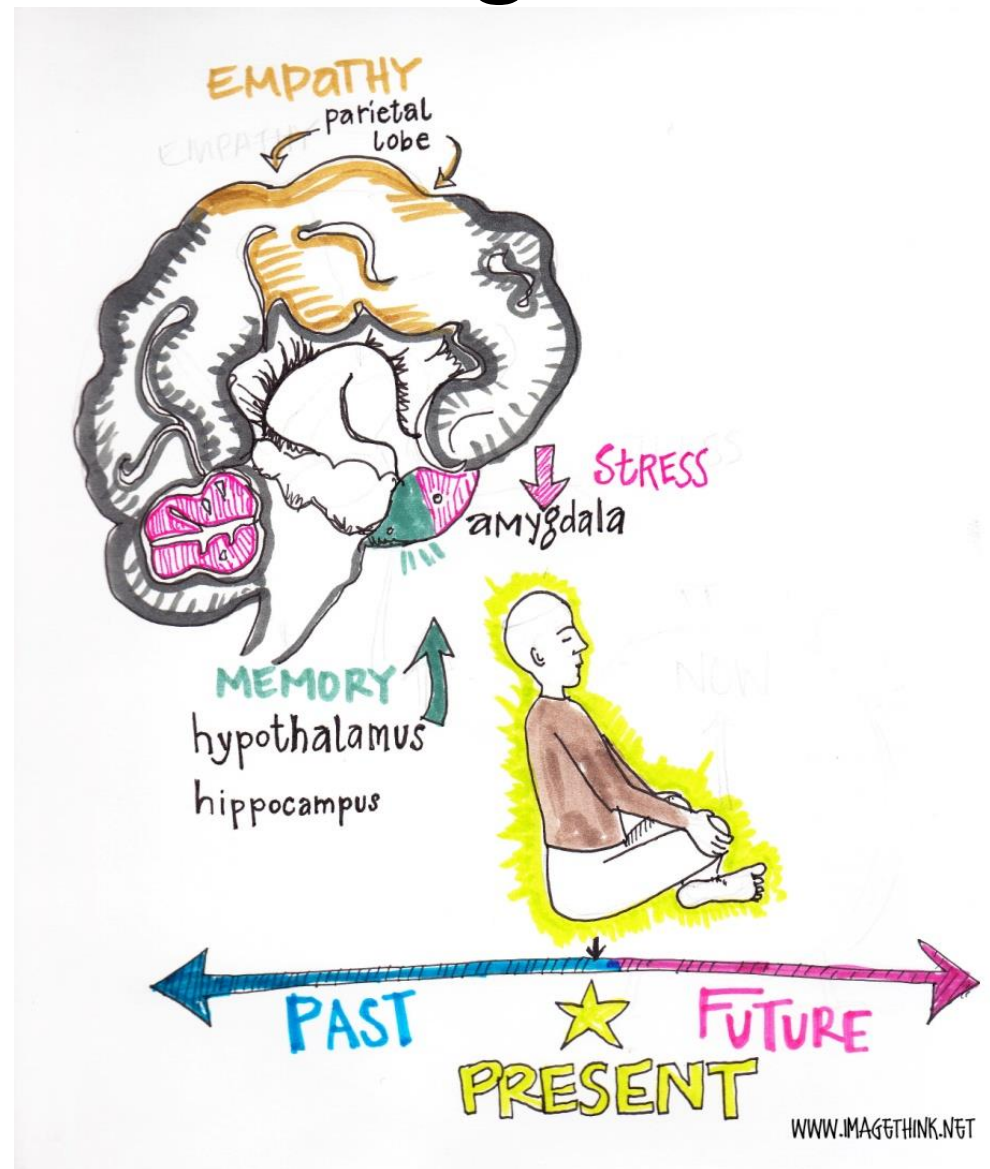 EMPATHY
parietal
lobe
EMPATHY
STRESS
amygdala
MEMORY
hypothalamus
hippocampus
NEW
PAST
FUTURE
PRESENT
WWW.IMAGETHINK.NET